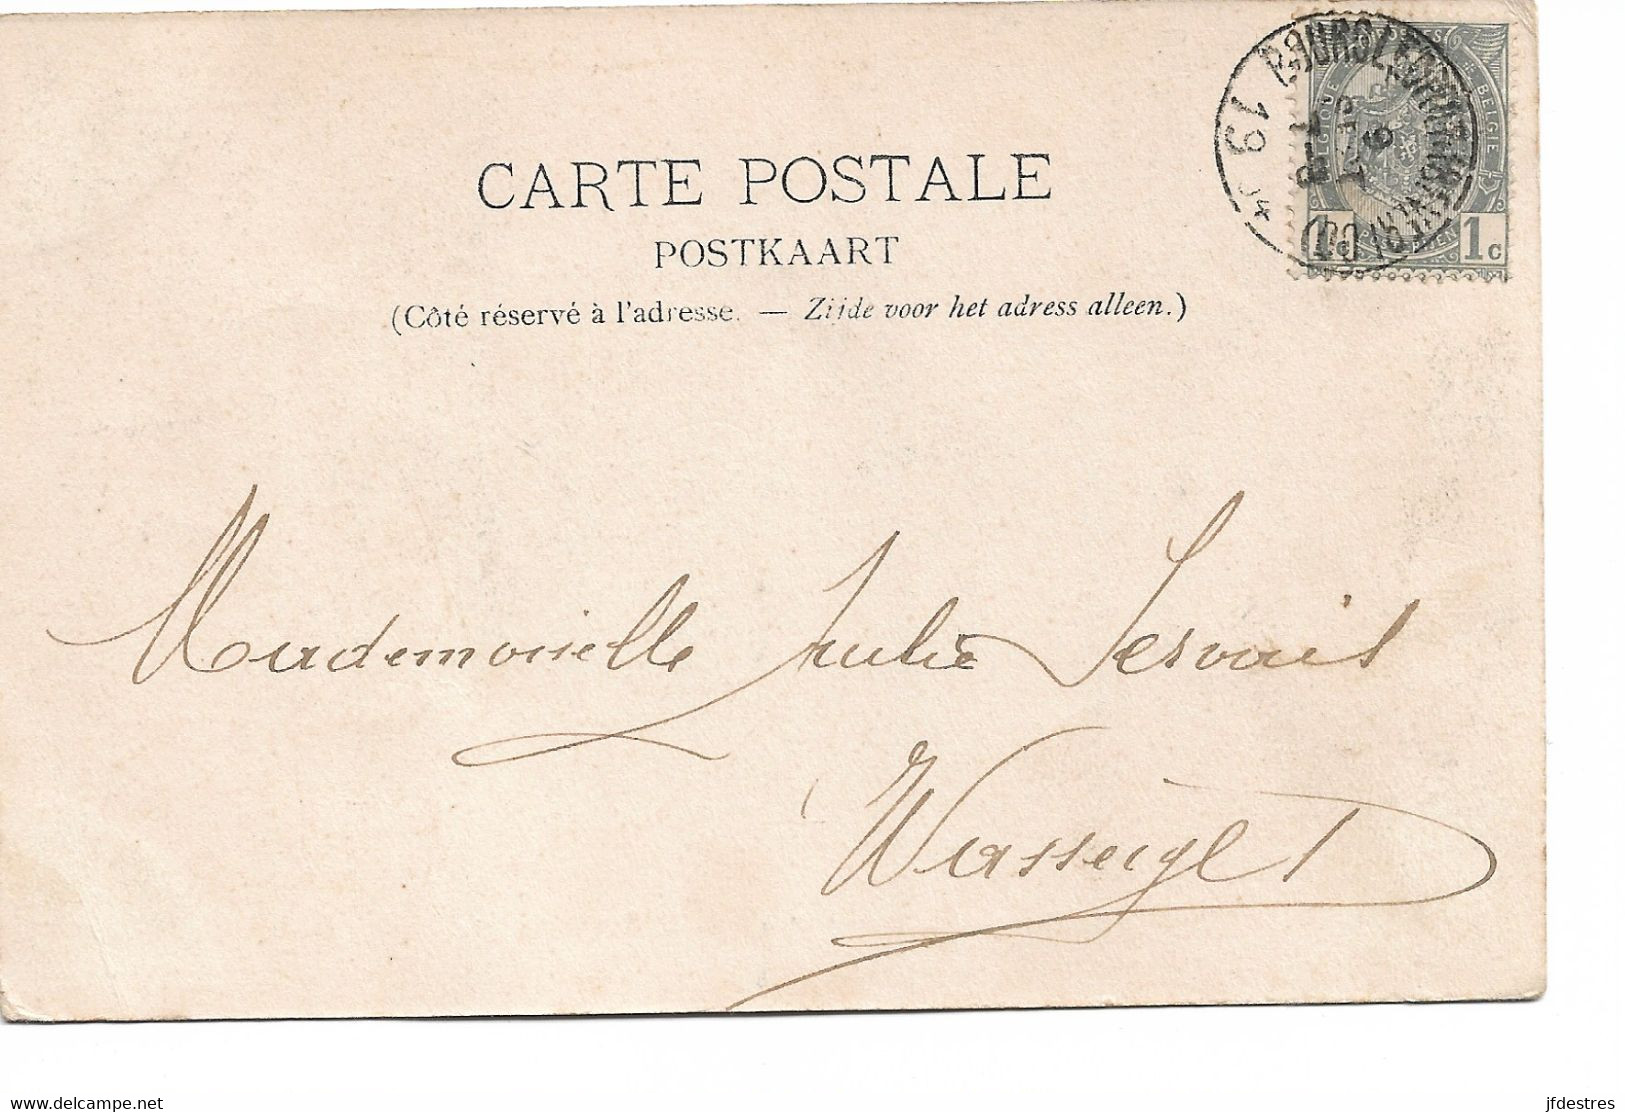 CARTE POSTALE
POSTKAART
(Côté réservé à l'adresse. — Zijde voor het adress alleen.)
BELGIQUE
BELGIE
1c
19
Mademoiselle Julie Servais
Wasseiges
www.delcampe.net
jfdestres